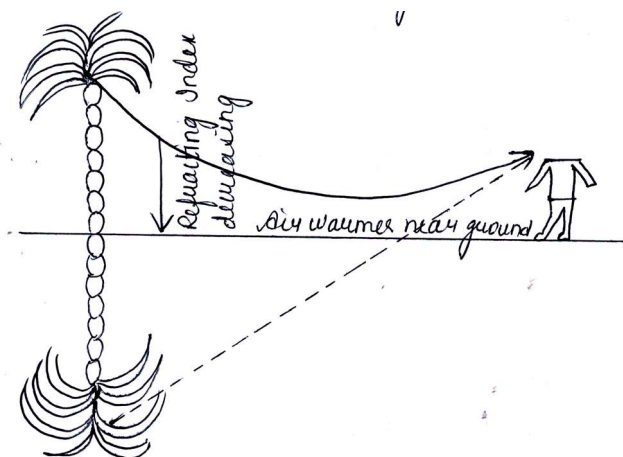 Refracting Index
decreasing
Air warmer near ground